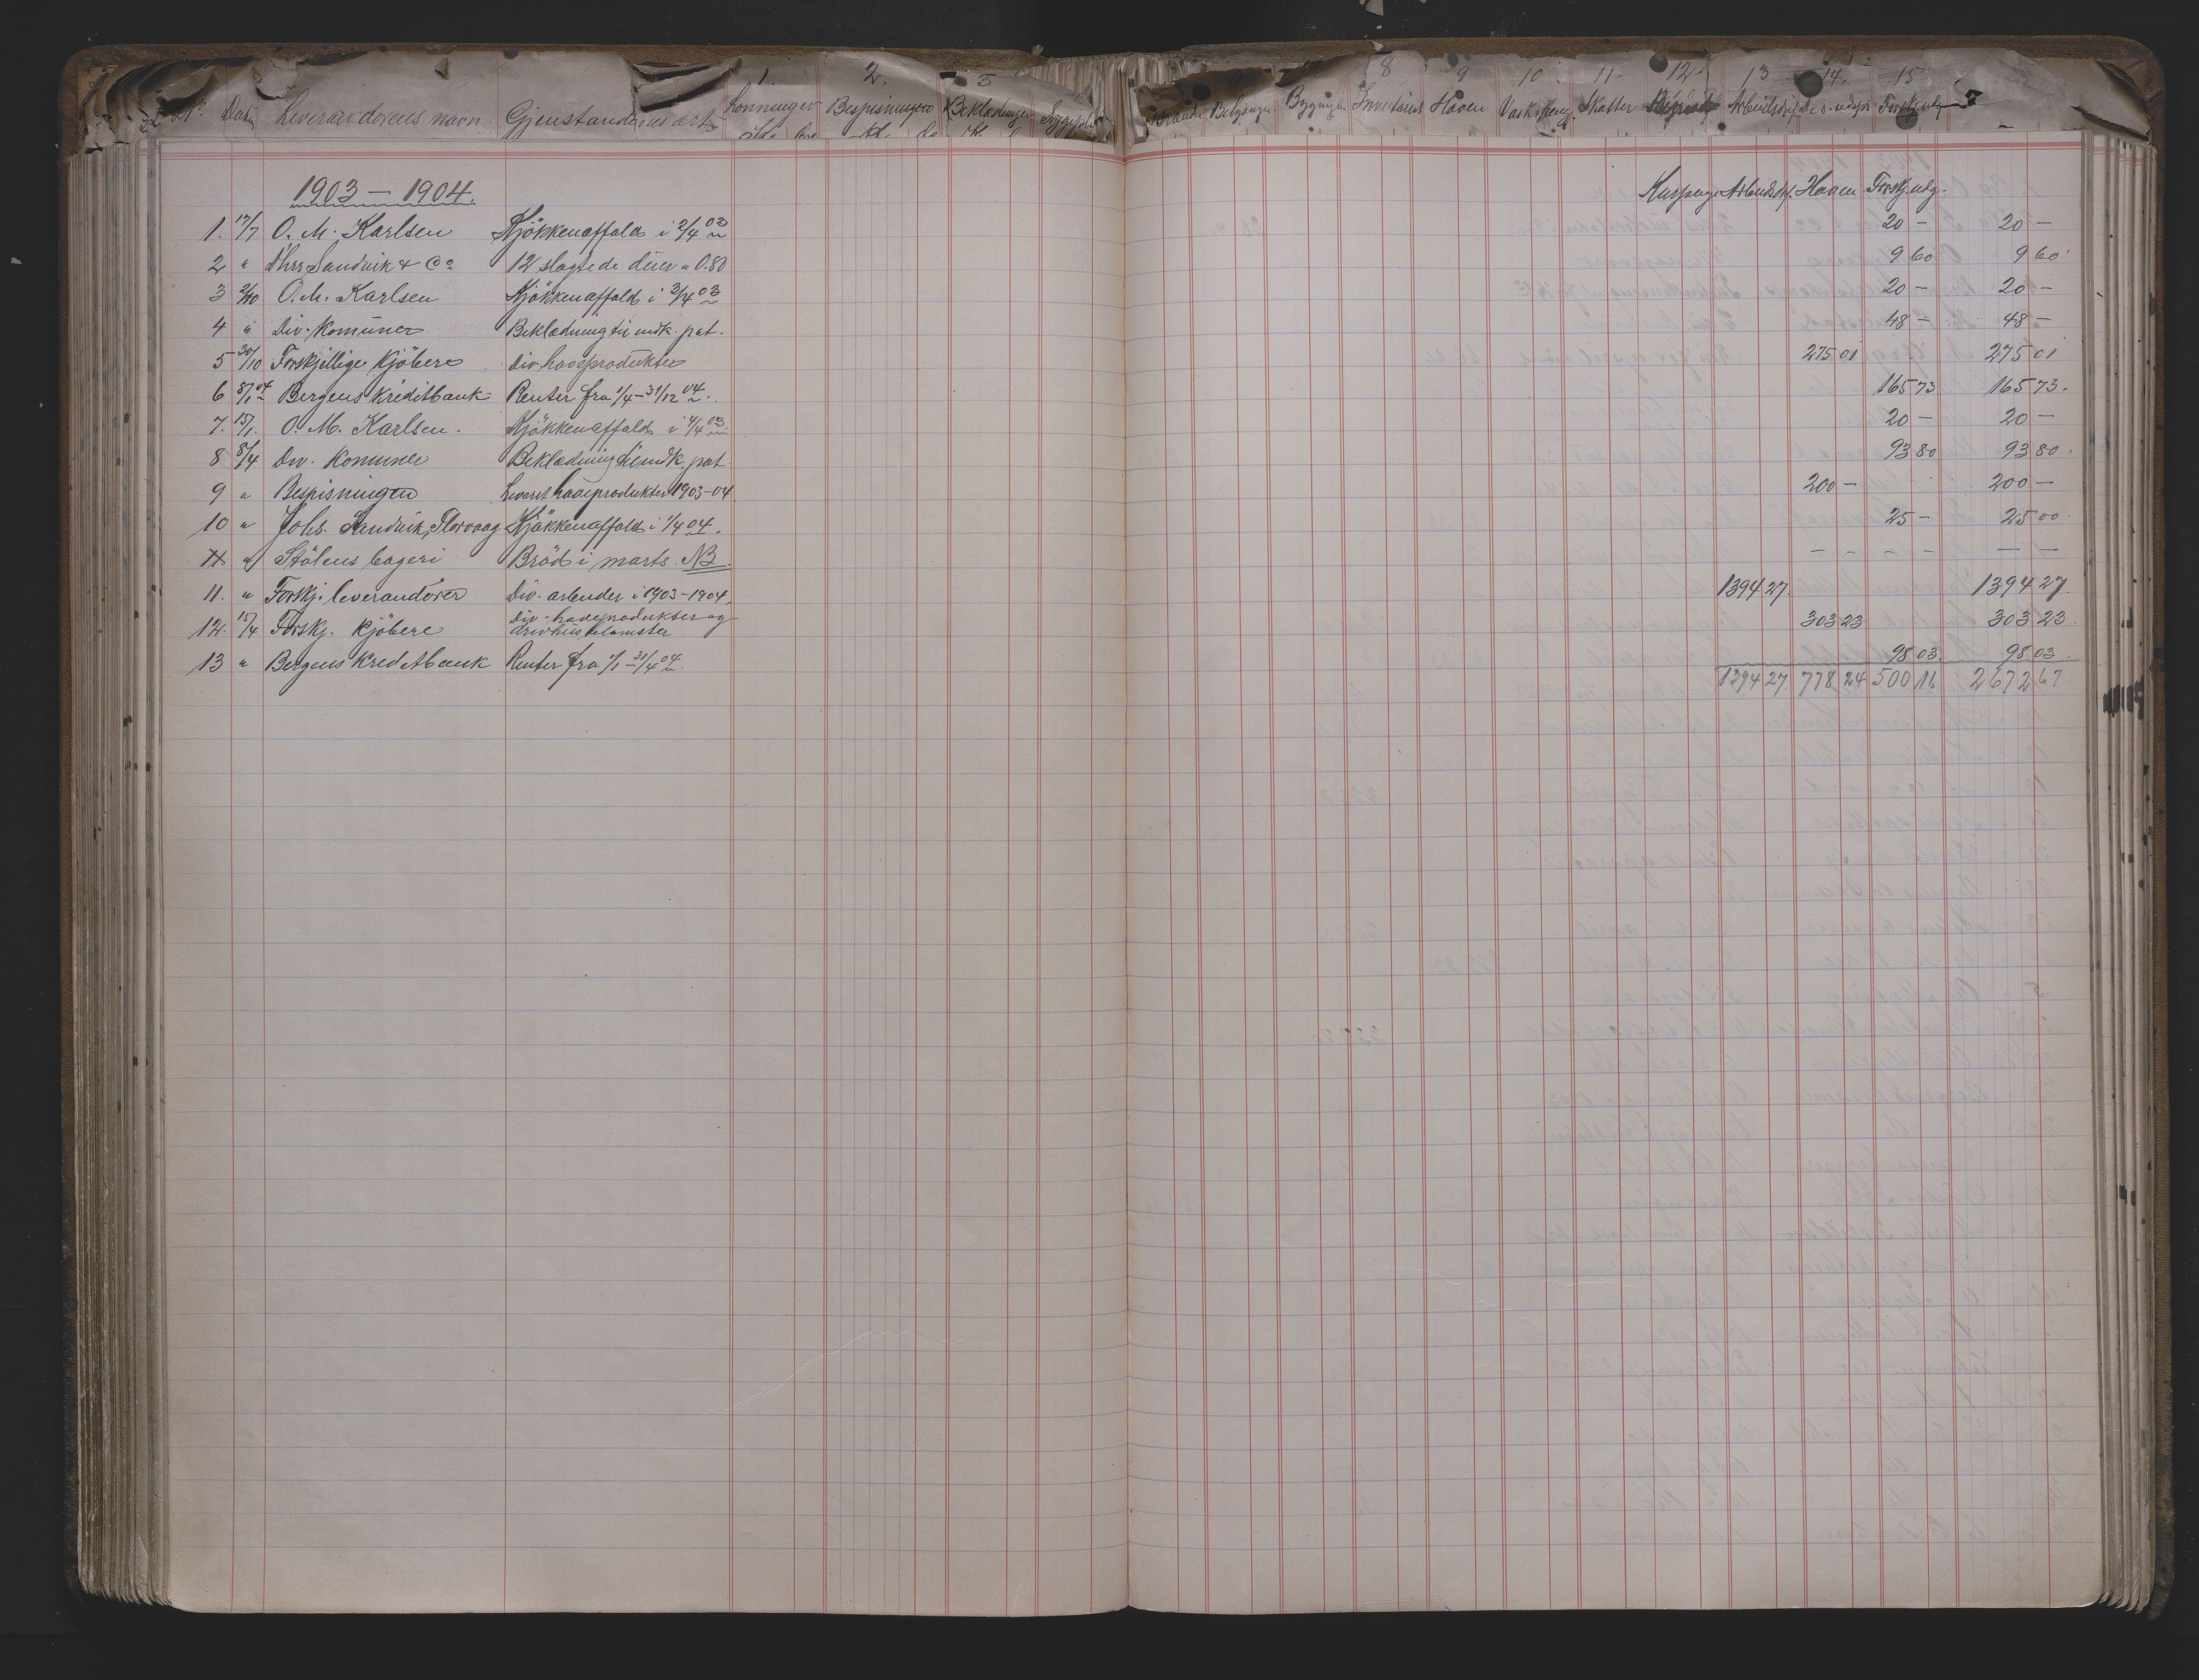 1. 2. 3 8 9 10 11 12 13 14. 15
No Dato Leverandörens navn. Gjenstandens art Lönninger Bespisningen Beklædningen Sygeplei Brænde Belysnign Bygnign Inventaret Haven Vask. reng. Skatter Arbeidsdrif Forskj. udg
1903 — 1904.
Kurpenge Arbeidsdr. Haven Forskj. udg.
1. 17/7 O. M. Karlsen Kjökkenaffald i 2/4 03 20 — 20 —
2 " Dhrr Sandvik & Co 12 slagtede duer a 0.80 9 60 9 60
3 2/10 O. M. Karlsen Kjökkenaffald i 3/4 03 20 — 20 —
4 " Div. Komuner Beklædning til indk. pat. 48 — 48 —
5 30/10 Forskjellige Kjöbere Div haveprodukter 275 01 275 01
6 8/1 04 Bergens Kreditbank Renter fra 1/4 – 31/12 04. 165 73 165 73.
7. 15/1. O. M. Karlsen. Kjökkenaffald i 4/4 03 20 — 20 —
8 8/4 Div. Komuner Beklædning til indk. pat. 93 80 93 80.
9 " Bespisningen Leveret haveprodukter 1903–04 200 — 200 —
10 " Johs. Sandvik, Florvaag Kjökkenaffald i 1/4 04. 25 — 25 00
11 " Stölens bageri Bröd i marts. NB. — — — — — —
11. " Forskj. leverandörer Div. arbeider i 1903–1904. 1394 27. 1394 27.
12. 15/4 Forskj. Kjöbere Div. haveprodukter og
drivhusblomster 303 23 303 23.
13 " Bergens Kreditbank Renter fra 1/1 – 31/4 04. 98 03. 98 03.
1394 27. 778 24 500 16 2672 67